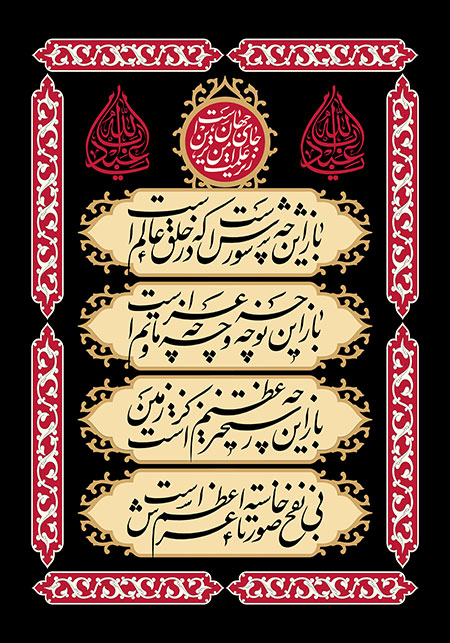 یا اباعبدالله
یا اباعبدالله
باز این چه شورش است که در خلق عالم است
باز این چه نوحه و چه عزا و چه ماتم است
باز این چه رستخیز عظیم است کز زمین
بی نفخ صور خاسته تا عرش اعظم است